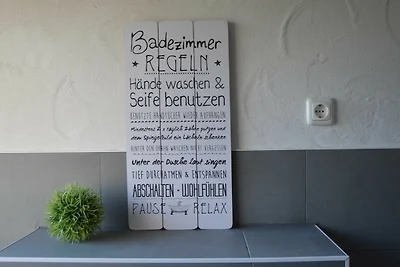 Badezimmer
REGELN
Hände waschen &
Seife benutzen
BENUTZTE HANDTÜCHER WIEDER AUFHÄNGEN
Mindestens 2 x täglich Zähne putzen und
dem Spiegelbild ein Lächeln schenken
HINTER DEN OHREN WASCHEN NICHT VERGESSEN
Unter der Dusche laut singen
TIEF DURCHATMEN & ENTSPANNEN
ABSCHALTEN - WOHLFÜHLEN
PAUSE RELAX